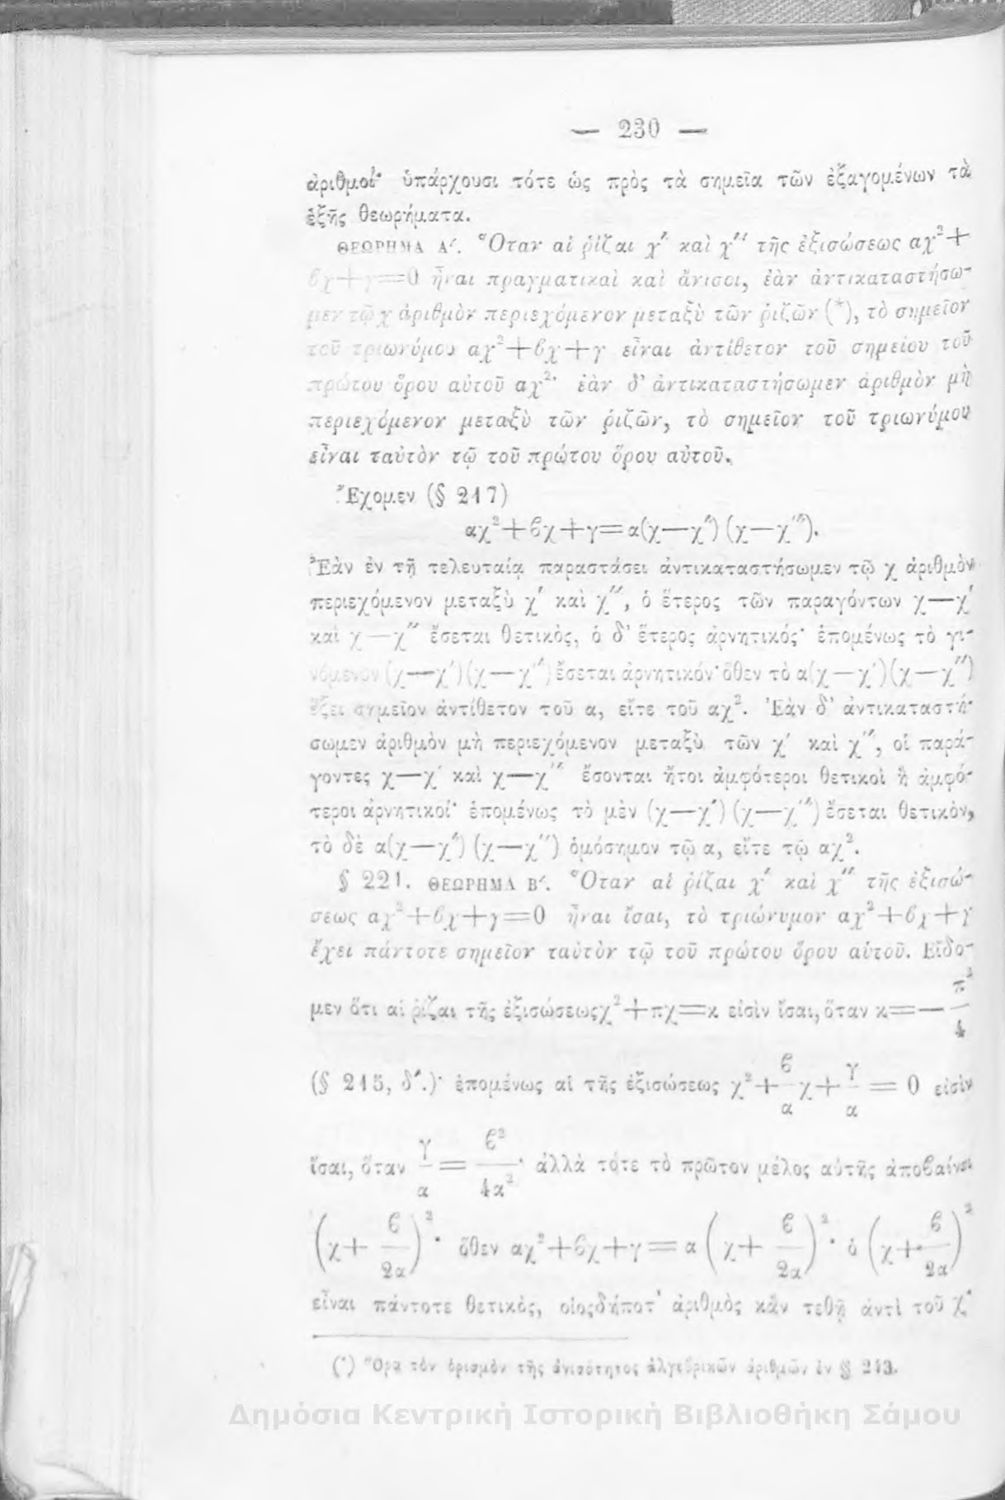 — 230 —
ἀριθμοί· ὑπάρχουσι τότε ὡς πρὸς τὰ σημεῖα τῶν ἐξαγομένων τὰ
ἑξῆς θεωρήματα.
ΘΕΩΡΗΜΑ Α΄. Ὅταν αἱ ῥίζαι χ′ καὶ χ″ τῆς ἐξισώσεως αχ²+
ϐχ+γ=0 ἦναι πραγματικαὶ καὶ ἄνισοι, ἐὰν ἀντικαταστήσω-
μεν τῷ χ ἀριθμὸν περιεχόμενον μεταξὺ τῶν ῥιζῶν (*), τὸ σημεῖον
τοῦ τριωνύμου αχ²+ϐχ+γ εἶναι ἀντίθετον τοῦ σημείου τοῦ
πρώτου ὅρου αὐτοῦ αχ²· ἐὰν δ' ἀντικαταστήσωμεν ἀριθμὸν μὴ
περιεχόμενον μεταξὺ τῶν ῥιζῶν, τὸ σημεῖον τοῦ τριωνύμου
εἶναι ταὐτὸν τῷ τοῦ πρώτου ὅρου αὐτοῦ.
Ἔχομεν (§ 217)
αχ²+ϐχ+γ=α(χ—χ′)(χ—χ″).
Ἐὰν ἐν τῇ τελευταίᾳ παραστάσει ἀντικαταστήσωμεν τῷ χ ἀριθμὸν
περιεχόμενον μεταξὺ χ′ καὶ χ″, ὁ ἕτερος τῶν παραγόντων χ—χ′
καὶ χ—χ″ ἔσεται θετικὸς, ὁ δ' ἕτερος ἀρνητικός· ἑπομένως τὸ γι-
νόμενον (χ—χ′)(χ—χ″) ἔσεται ἀρνητικόν· ὅθεν τὸ α(χ—χ′)(χ—χ″)
ἕξει σημεῖον ἀντίθετον τοῦ α, εἴτε τοῦ αχ². Ἐὰν δ' ἀντικαταστή-
σωμεν ἀριθμὸν μὴ περιεχόμενον μεταξὺ τῶν χ′ καὶ χ″, οἱ παρά-
γοντες χ—χ′ καὶ χ—χ″ ἔσονται ἤτοι ἀμφότεροι θετικοὶ ἢ ἀμφό-
τεροι ἀρνητικοί· ἑπομένως τὸ μὲν (χ—χ′)(χ—χ″) ἔσεται θετικὸν,
τὸ δὲ α(χ—χ′)(χ—χ″) ὁμόσημον τῷ α, εἴτε τῷ αχ².
§ 221. ΘΕΩΡΗΜΑ Β΄. Ὅταν αἱ ῥίζαι χ′ καὶ χ″ τῆς ἐξισώ-
σεως αχ²+ϐχ+γ=0 ἦναι ἴσαι, τὸ τριώνυμον αχ²+ϐχ+γ
ἔχει πάντοτε σημεῖον ταὐτὸν τῷ τοῦ πρώτου ὅρου αὐτοῦ. Εἴδο-
μεν ὅτι αἱ ῥίζαι τῆς ἐξισώσεως χ²+πχ=κ εἰσὶν ἴσαι, ὅταν κ=—π²/4
(§ 215, δ΄.)· ἑπομένως αἱ τῆς ἐξισώσεως χ²+ϐ/α χ+γ/α=0 εἰσὶν
ἴσαι, ὅταν γ/α=ϐ²/4α²· ἀλλὰ τότε τὸ πρῶτον μέλος αὐτῆς ἀποϐαίνει
(χ+ϐ/2α)²· ὅθεν αχ²+ϐχ+γ=α(χ+ϐ/2α)²· ὁ (χ+ϐ/2α)²
εἶναι πάντοτε θετικὸς, οἱοσδήποτ' ἀριθμὸς κἂν τεθῇ ἀντὶ τοῦ χ·
(*) Ὅρα τὸν ὁρισμὸν τῆς ἀνισότητος ἀλγεϐρικῶν ἀριθμῶν ἐν § 213.
Δημόσια Κεντρική Ιστορική Βιβλιοθήκη Σάμου